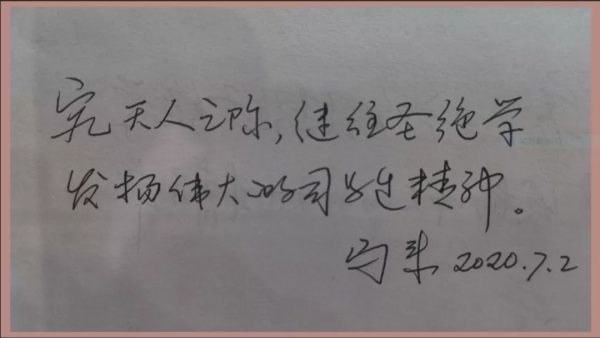 究天人之际,继往圣绝学
发扬伟大的司马迁精神。
2020.7.2